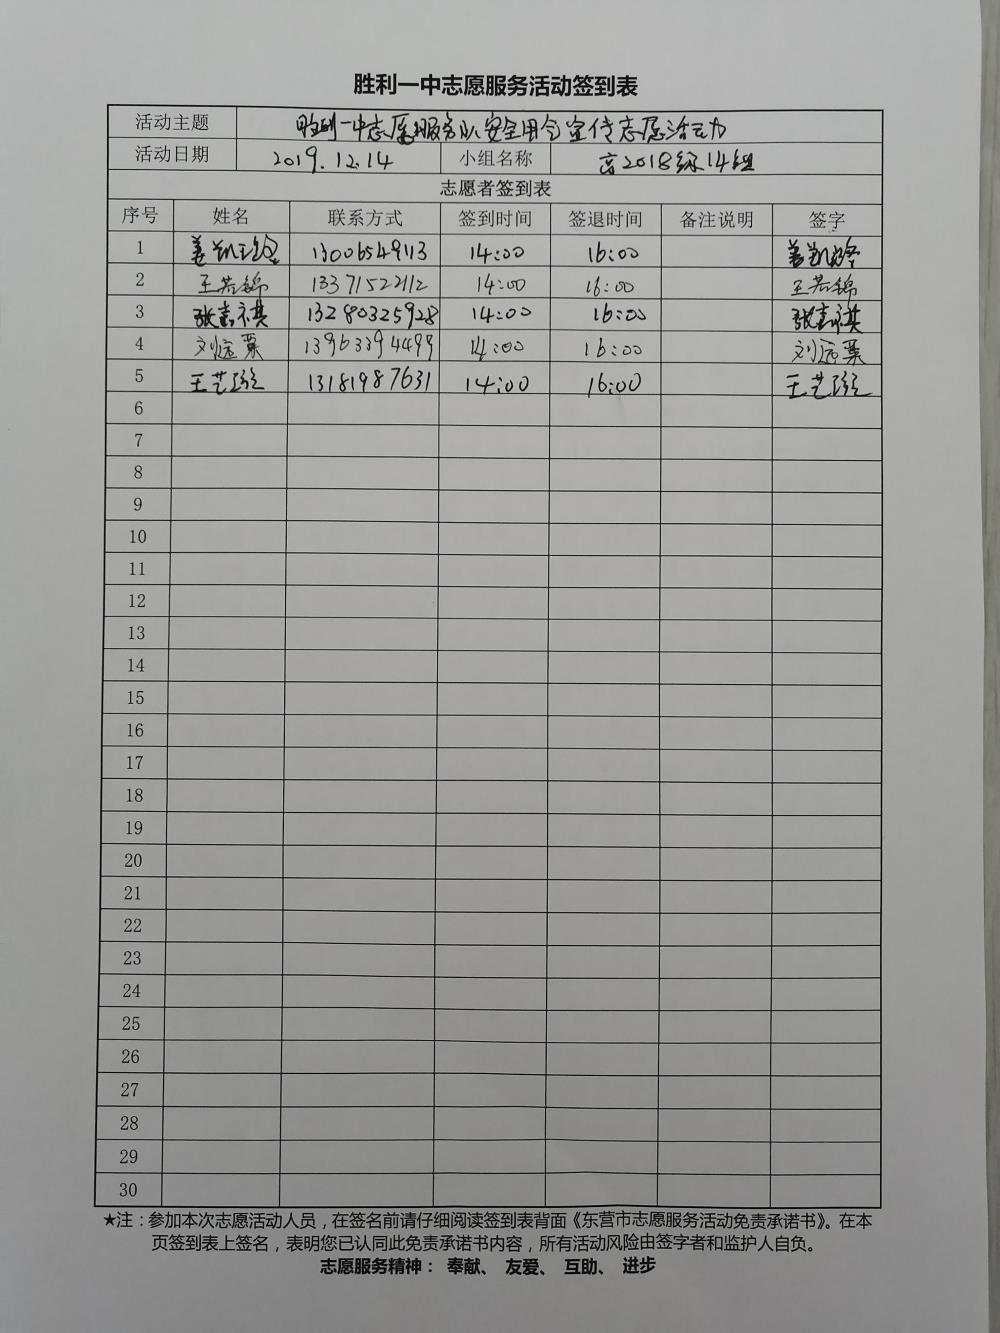 胜利一中志愿服务活动签到表
活动主题 胜利一中志愿服务队安全用令宣传志愿活动
活动日期 2019.12.14 小组名称 高2018级14组
志愿者签到表
序号 姓名 联系方式 签到时间 签退时间 备注说明 签字
1 姜凯玲 13006549113 14:00 16:00 姜凯玲
2 王若锦 13371522112 14:00 16:00 王若锦
3 张嘉祺 13280325928 14:00 16:00 张嘉祺
4 刘远粟 13963394499 14:00 16:00 刘远粟
5 王艺璇 13181987631 14:00 16:00 王艺璇
6
7
8
9
10
11
12
13
14
15
16
17
18
19
20
21
22
23
24
25
26
27
28
29
30
★注：参加本次志愿活动人员，在签名前请仔细阅读签到表背面《东营市志愿服务活动免责承诺书》。在本
页签到表上签名，表明您已认同此免责承诺书内容，所有活动风险由签字者和监护人自负。
志愿服务精神： 奉献、 友爱、 互助、 进步